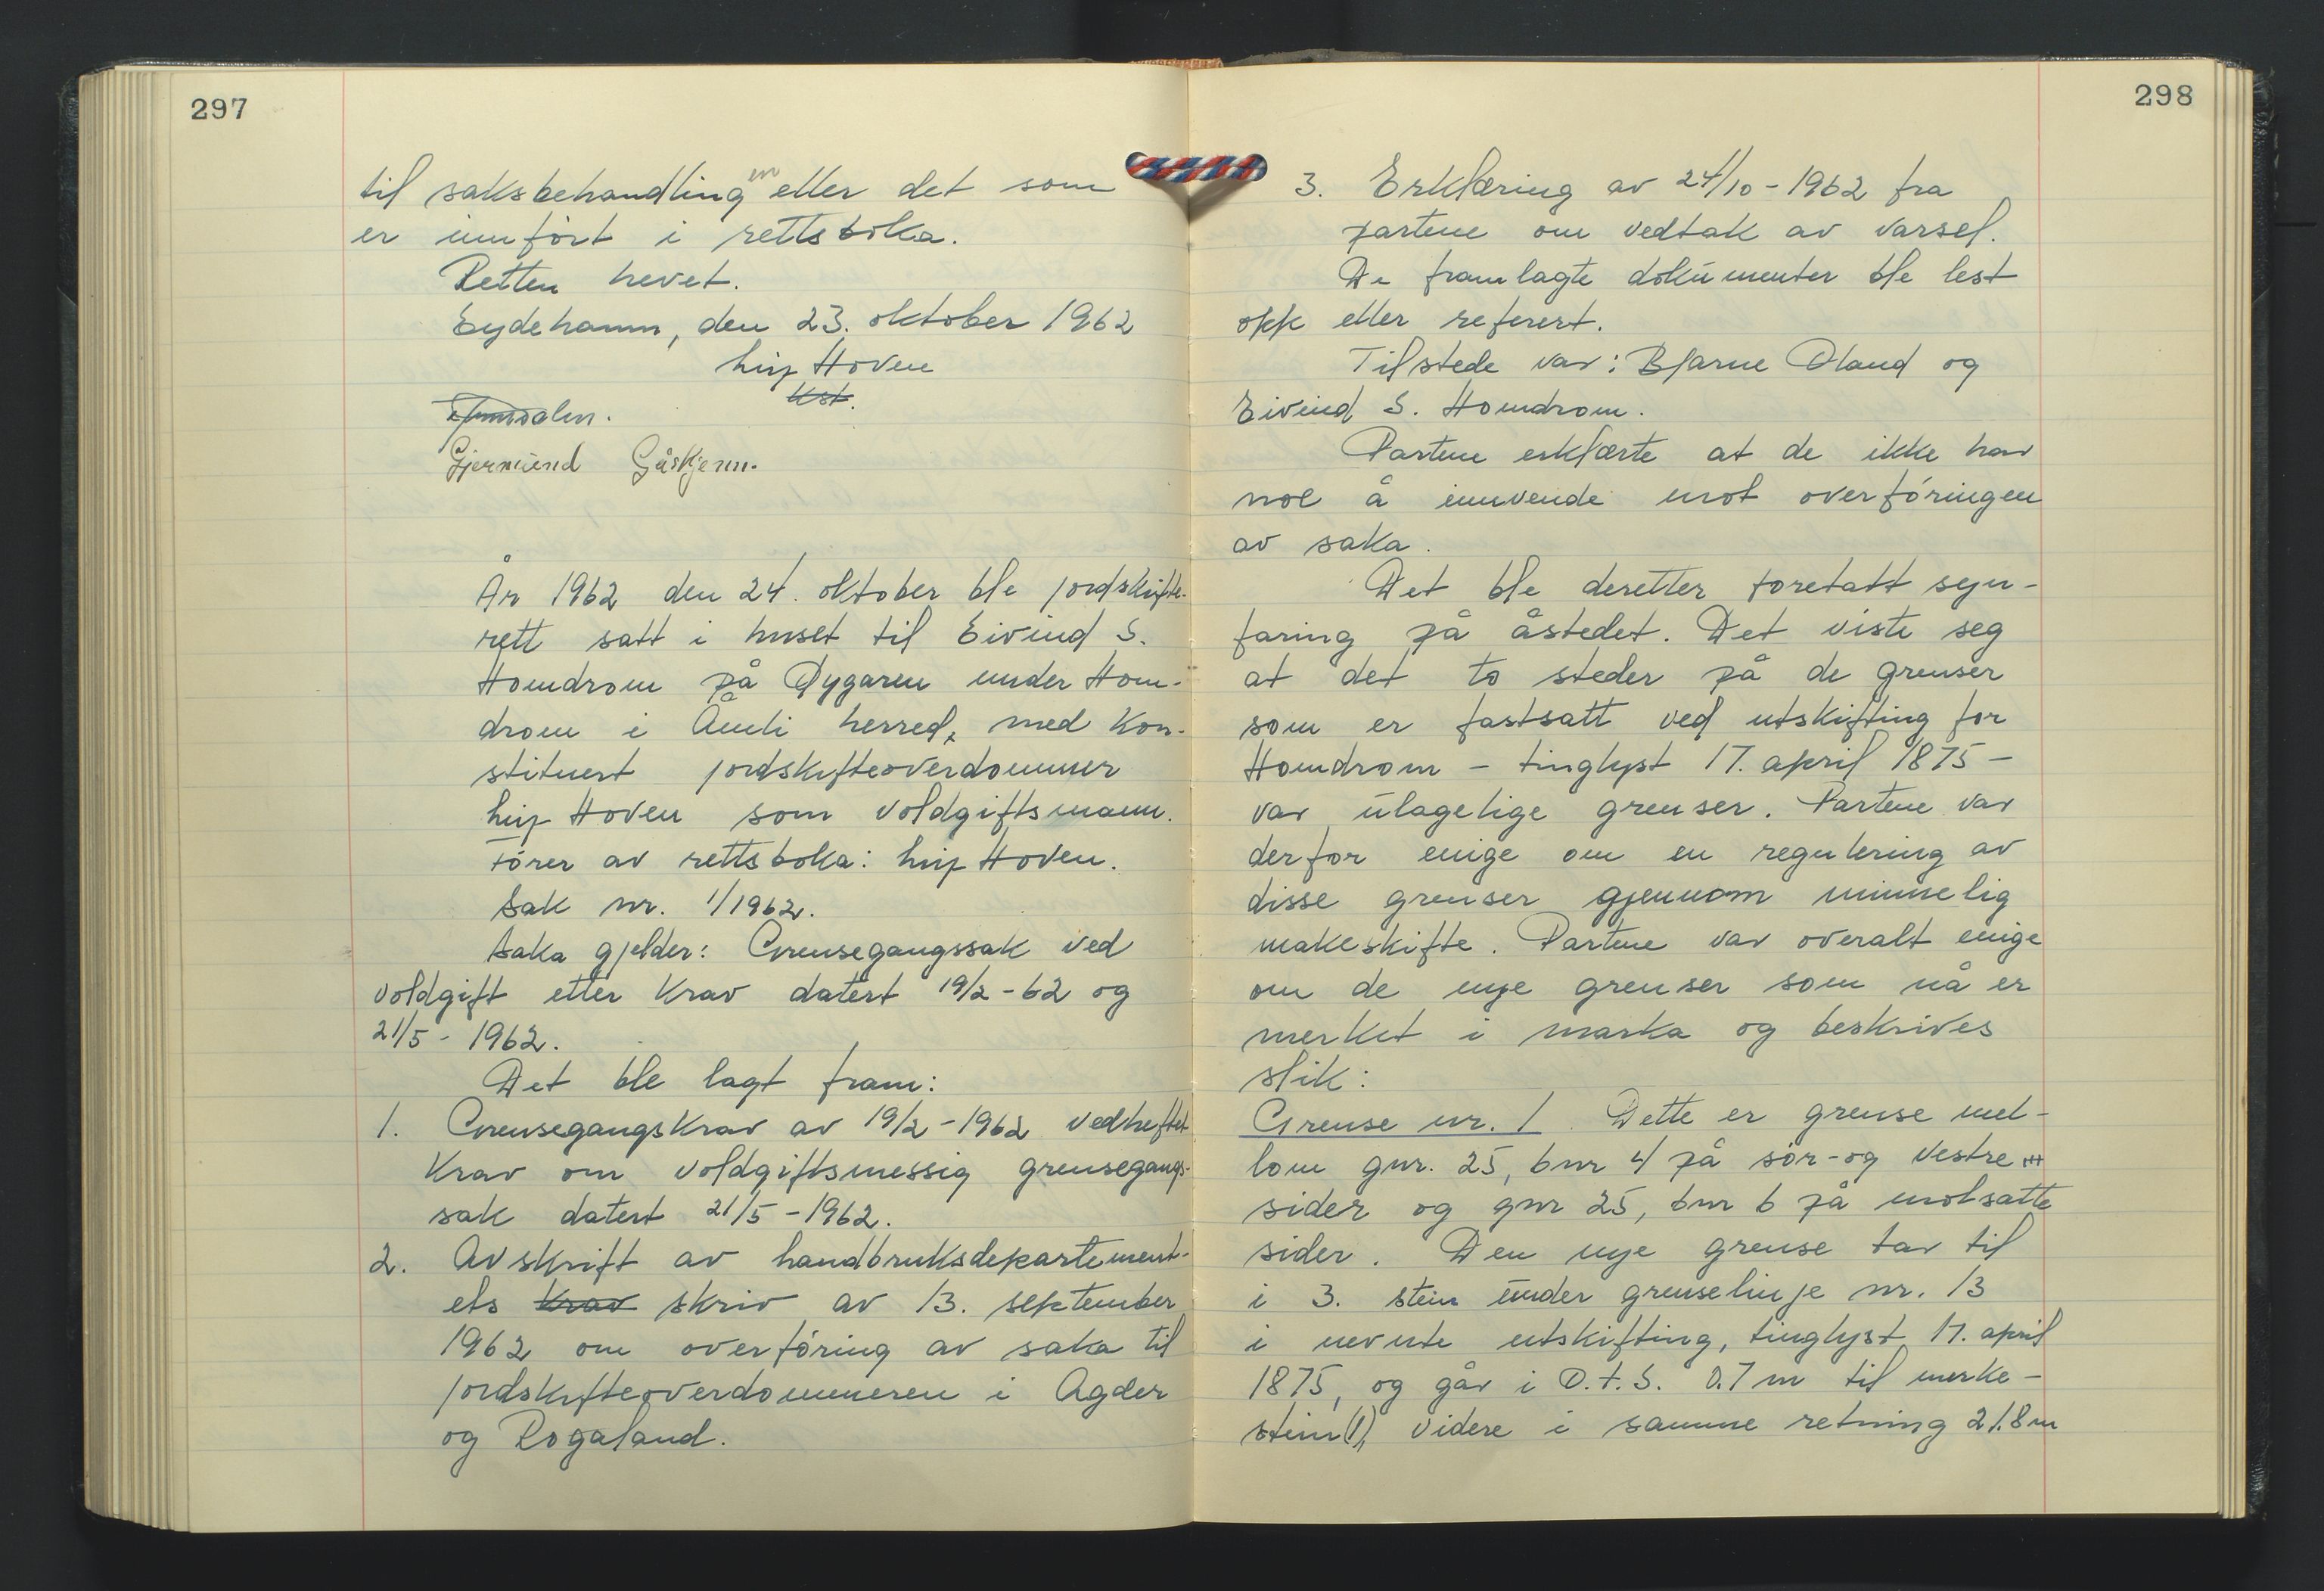 297
til saksbehandlingen eller det som
er innført i rettsboka.
Retten hevet.
Eydehamn, den 23. oktober 1962
Hoven
kst.
Gjermund Gåskjenn.
År 1962 den 24. oktober ble jordskifte-
rett satt i huset til Eivind S.
Homdrom på Øygaren under Hom-
drom i Åmli herred, med kon-
stituert jordskifteoverdommer
Hoven som voldgiftsmann.
Fører av rettsboka: Hoven.
Sak nr. 1/1962.
Saka gjelder: Grensegangssak ved
voldgift etter krav datert 19/2-62 og
21/5-1962.
Det ble lagt fram:
1. Grensegangskrav av 19/2-1962 vedheftet
krav om voldgiftsmessig grensegangs-
sak datert 21/5-1962.
2. Avskrift av landbruksdepartement-
ets krav skriv av 13. september
1962 om overføring av saka til
jordskifteoverdommeren i Agder
og Rogaland.
298
3. Erklæring av 24/10-1962 fra
partene om vedtak av varsel.
De framlagte dokumenter ble lest
opp eller referert.
Tilstede var: Bjarne Øland og
Eivind S. Homdrom.
Partene erklærte at de ikke har
noe å innvende mot overføringen
av saka.
Det ble deretter foretatt syn-
faring på åstedet. Det viste seg
at det to steder på de grenser
som er fastsatt ved utskifting for
Homdrom - tinglyst 17. april 1875 -
var ulagelige grenser. Partene var
derfor enige om en regulering av
disse grenser gjennom minnelig
makeskifte. Partene var overalt enige
om de nye grenser som nå er
merket i marka og beskrives
slik:
Grense nr. 1. Dette er grense mel-
lom gnr. 25, bnr 4 på sør-og vestre
sider og gnr 25, bnr 6 på motsatte
sider. Den nye grense tar til
i 3. stein under grenselinje nr. 13
i nevnte utskifting, tinglyst 17. april
1875, og går i O.t.S. 0.7 m til merke-
stein(1), videre i samme retning 21.8 m